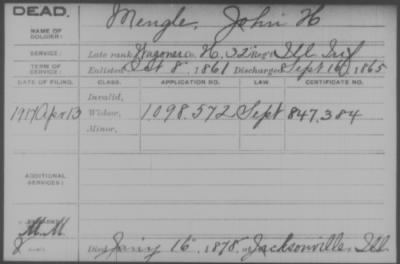 DEAD.
NAME OF SOLDIER: Mengle, John H
SERVICE: Late rank Wagoner Co. H, 32" Reg't Ill Inf
TERM OF SERVICE Enlisted Oct 8, 1861 Discharged Sept 16, 1865
DATE OF FILING. CLASS. APPLICATION NO. LAW. CERTIFICATE NO.
Invalid,
1917 Apr 13 Widow, 1.098.572 Sept 847.384
Minor,
ADDITIONAL SERVICES:
M.M
Died Jan'y 16", 1878, at Jacksonville Ill